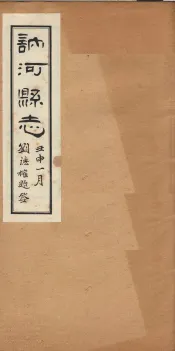 訥河縣志
壬申一月
劉德權題簽